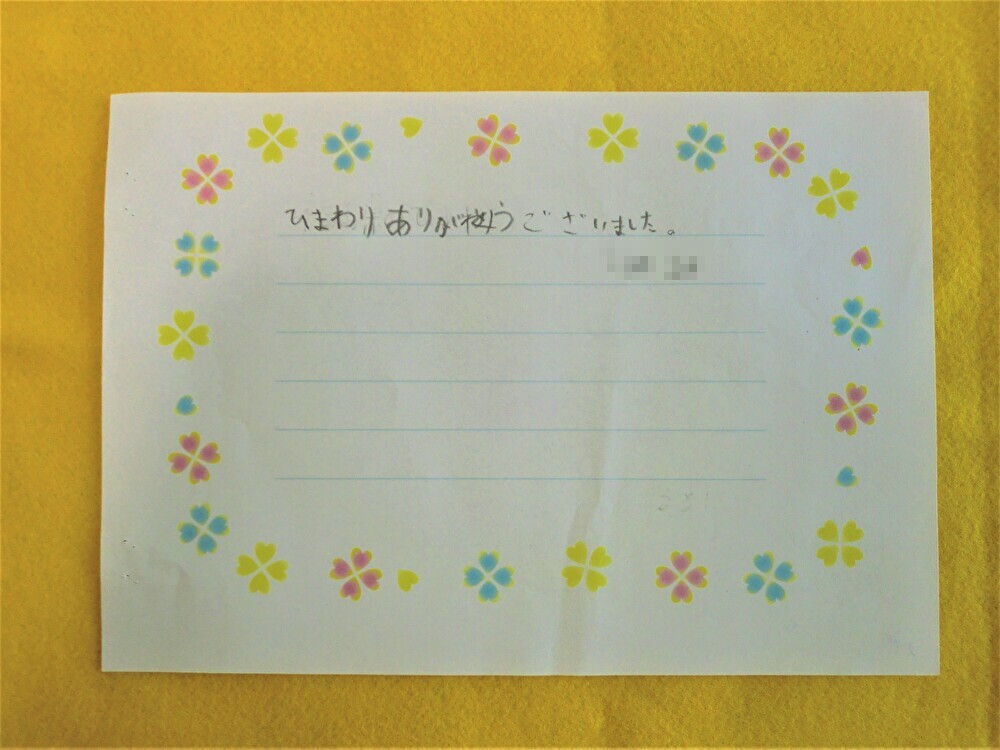 ひまわり ありがとう ございました。